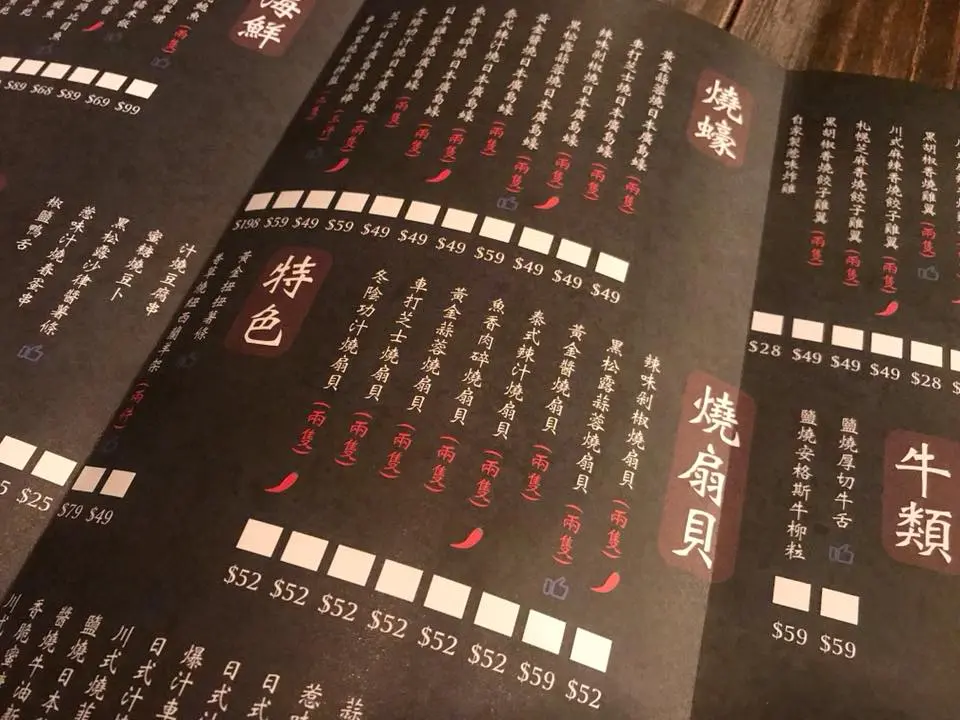 海鮮
$89 $68 $89 $69 $99
燒蠔
黃金蒜蓉燒日本廣島蠔（兩隻）
車打芝士燒日本廣島蠔（兩隻）
辣味剁椒燒日本廣島蠔（兩隻）
黑松露蒜蓉燒日本廣島蠔（兩隻）
黃金醬燒日本廣島蠔（兩隻）
泰式辣汁燒日本廣島蠔（兩隻）
魚香肉碎燒日本廣島蠔（兩隻）
$198 $59 $49 $59 $49 $49 $49 $59 $49 $49 $49
黑胡椒香燒雞翼（兩隻）
川式麻辣香燒餃子雞翼（兩隻）
札幌芝麻香燒餃子雞翼（兩隻）
黑胡椒香燒餃子雞翼（兩隻）
自家製惹味炸雞
$28 $49 $49 $49 $28
汁燒豆腐串
蜜糖燒豆卜
黑松露沙律醬薯條
惹味汁燒春蛋串
椒鹽鴨舌
$25
特色
黃金扭扭薯條
香草燒紐西蘭羊架（兩件）
$79 $49
燒扇貝
辣味剁椒燒扇貝（兩隻）
黑松露蒜蓉燒扇貝（兩隻）
黃金醬燒扇貝（兩隻）
泰式辣汁燒扇貝（兩隻）
魚香肉碎燒扇貝（兩隻）
黃金蒜蓉燒扇貝（兩隻）
車打芝士燒扇貝（兩隻）
冬陰功汁燒扇貝（兩隻）
$52 $52 $52 $52 $52 $52 $59 $52
牛類
鹽燒厚切牛舌
鹽燒安格斯牛柳粒
$59 $59
蒜
惹味
日式
日式汁
爆汁車
日式
川式汁
鹽燒韮
醬燒日本
香脆牛油
川式